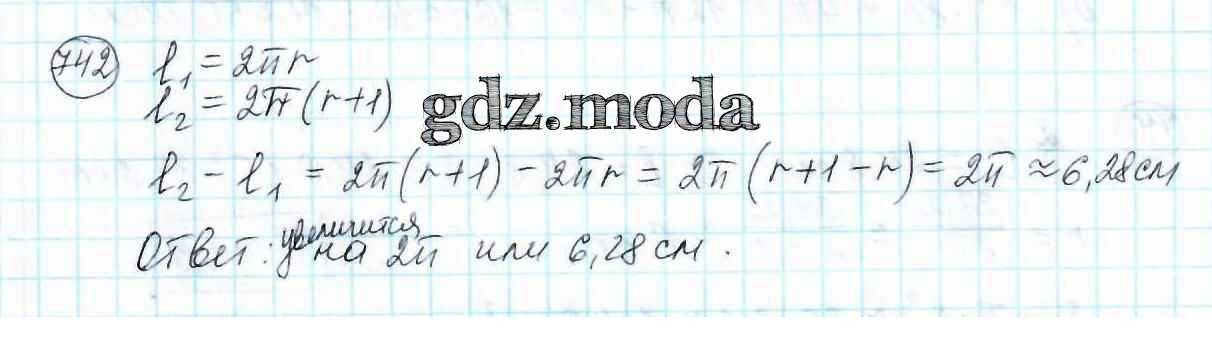 742 l₁ = 2πr
l₂ = 2π(r+1)
gdz.moda
l₂ - l₁ = 2π(r+1) - 2πr = 2π(r+1-r) = 2π ≈ 6,28 см
Ответ: увеличится на 2π или 6,28 см.